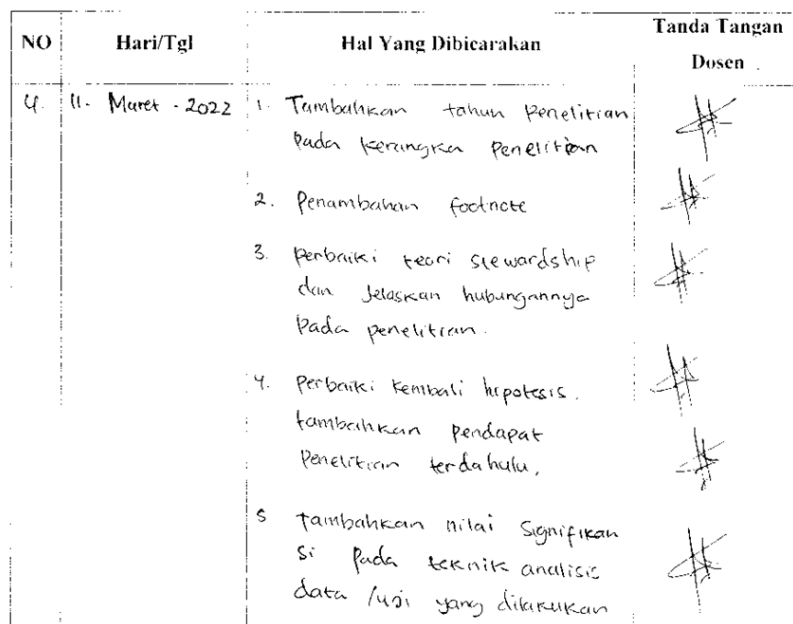 NO Hari/Tgl Hal Yang Dibicarakan Tanda Tangan Dosen
4. 11 - Maret - 2022 1. Tambahkan tahun penelitian
pada kerangka penelitian
2. Penambahan footnote
3. perbaiki teori stewardship
dan Jelaskan hubungannya
pada penelitian.
4. perbaiki kembali hipotesis.
tambahkan pendapat
penelitian terdahulu.
5 tambahkan nilai signifikan
si pada teknik analisis
data /uji yang dilakukan